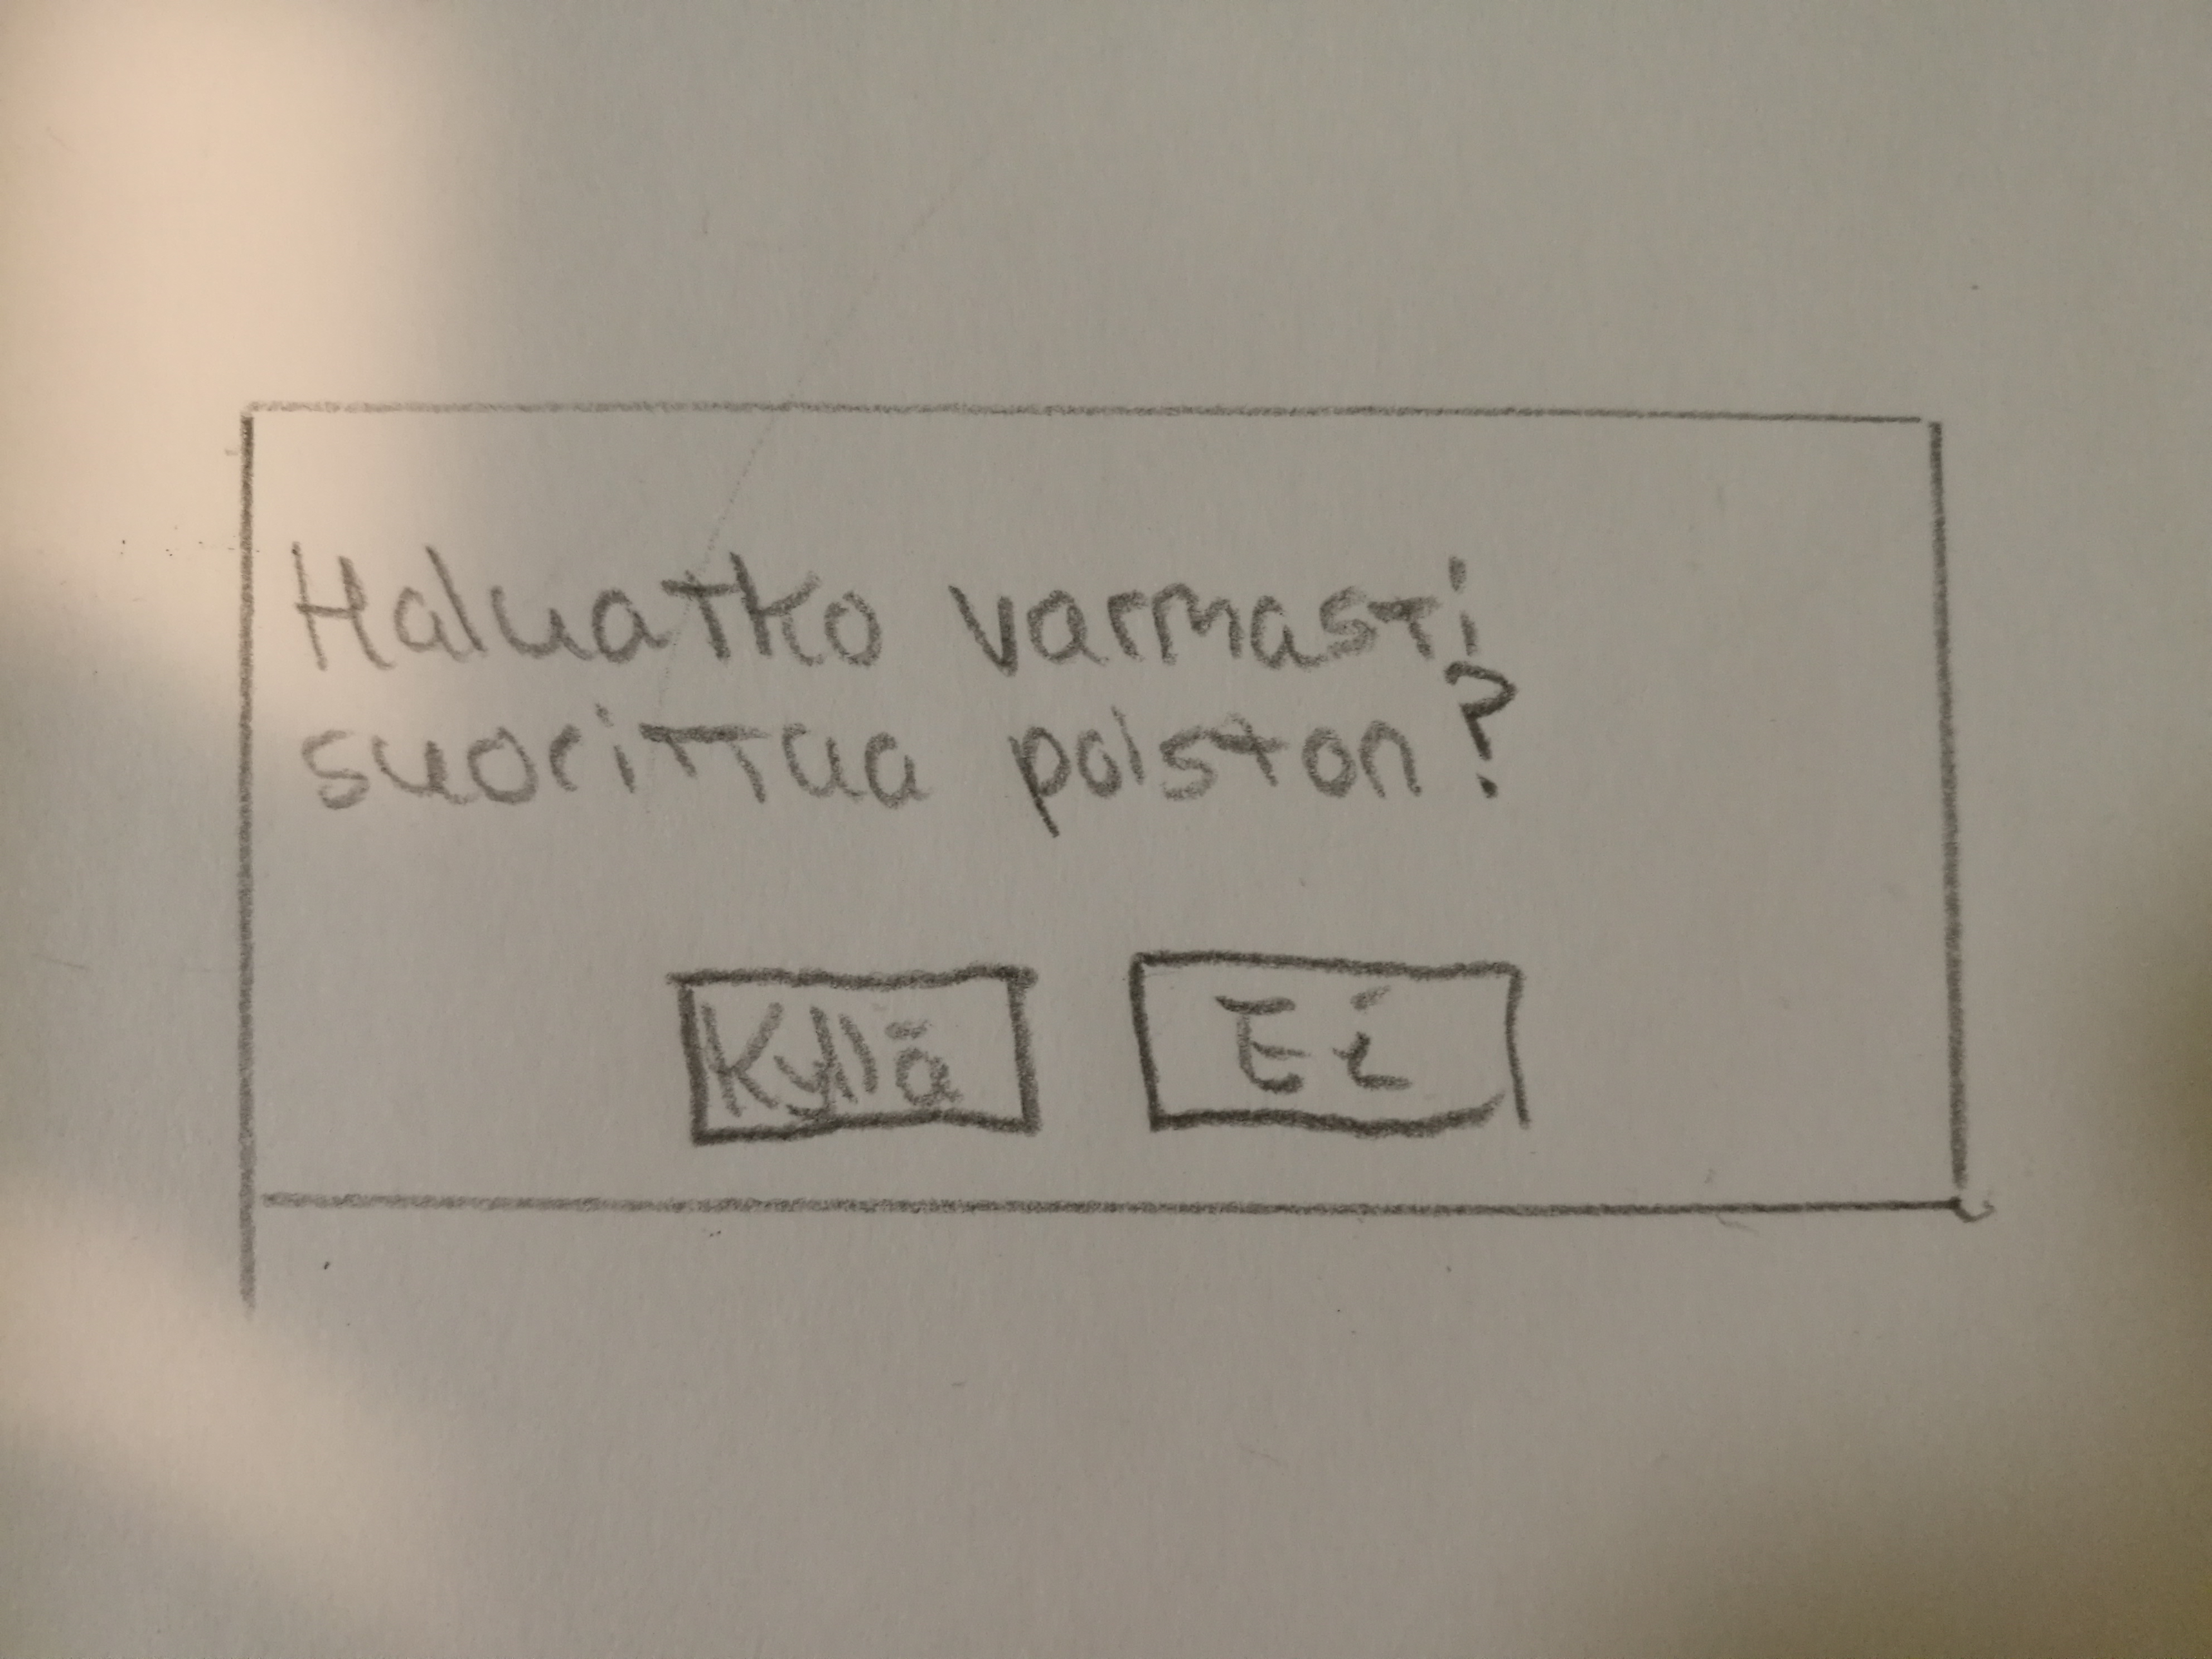 Haluatko varmasti
suorittaa poiston?
Kyllä Ei